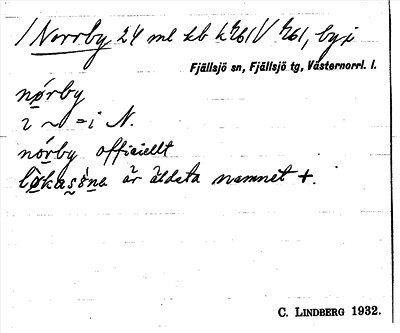 / Norrby 24 ml kb k761 V 761, by i
Fjällsjö sn, Fjällsjö tg, Västernorrl. l.
nørby
i ~ = i N.
nórby officiellt
lo̱kasö̀na är äldsta namnet +.
C. LINDBERG 1932.